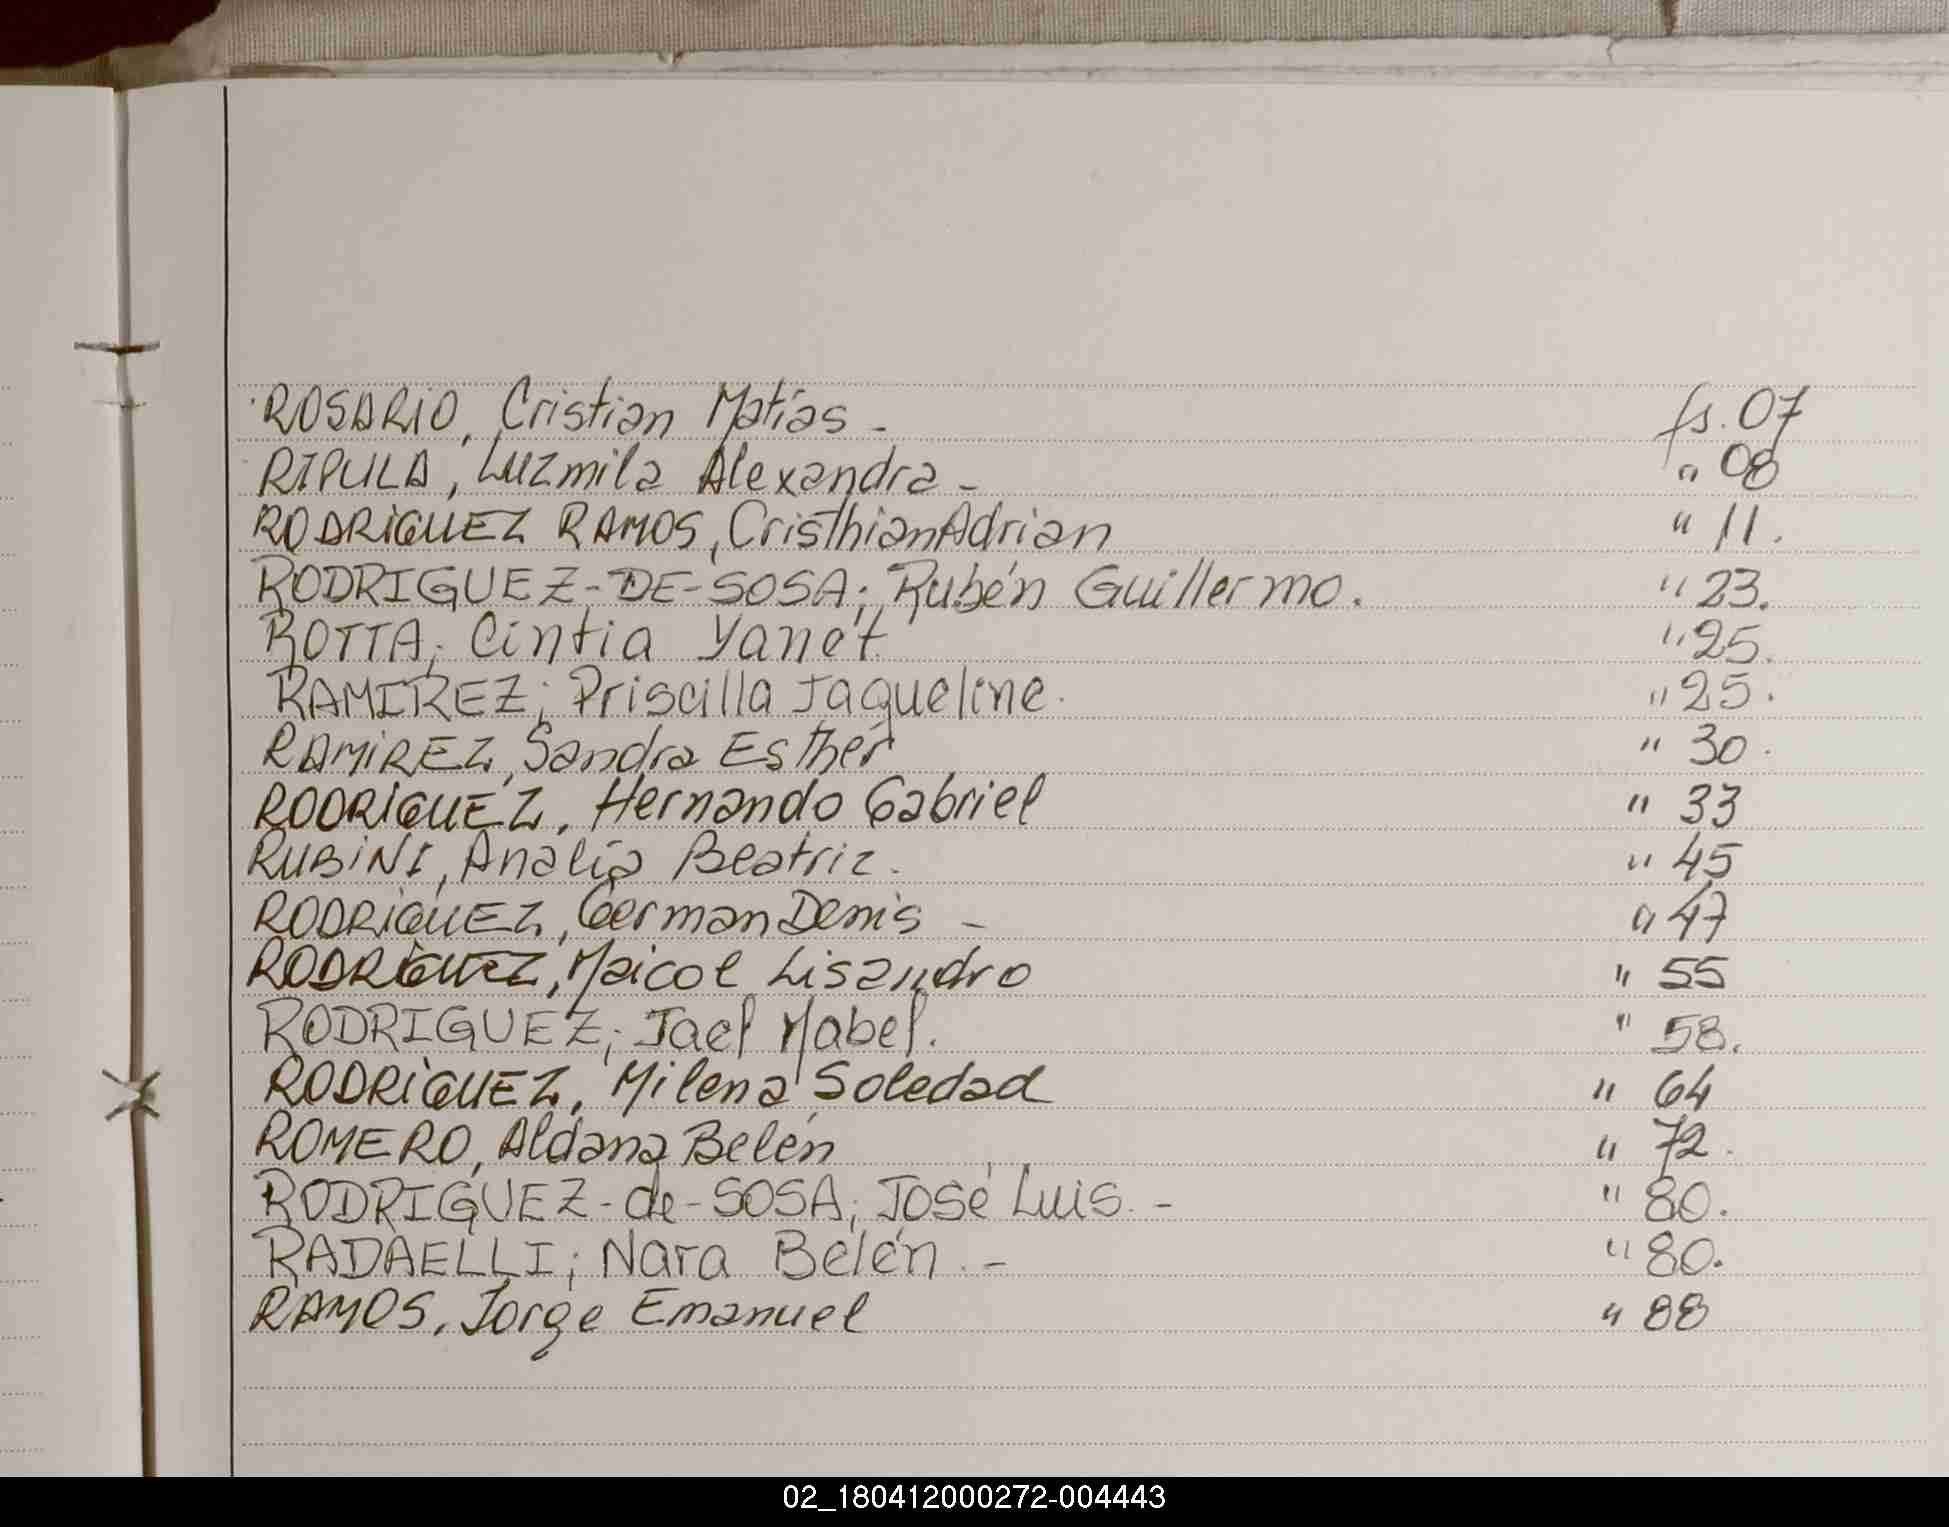 ROSARIO, Cristian Matías - fs. 07
RIPULA, Luzmila Alexandra - " 08
RODRIGUEZ RAMOS, Cristhian Adrian " 11.
RODRIGUEZ-DE-SOSA; Rubén Guillermo. " 23.
ROTTA; Cintia Yanét " 25.
RAMIREZ; Priscilla Jaqueline. " 25.
RAMIREZ, Sandra Esther " 30.
RODRIGUEZ, Hernando Gabriel " 33
RUBINI, Analía Beatriz. " 45
RODRIGUEZ, German Denis - " 47
RODRIGUEZ, Maicol Lisandro " 55
RODRIGUEZ; Jael Mabel. " 58.
RODRIGUEZ, Milena Soledad " 64
ROMERO, Aldana Belén " 72.
RODRIGUEZ-de-SOSA; José Luis. - " 80.
RADAELLI; Nara Belén. - " 80.
RAMOS, Jorge Emanuel " 88
02_180412000272-004443